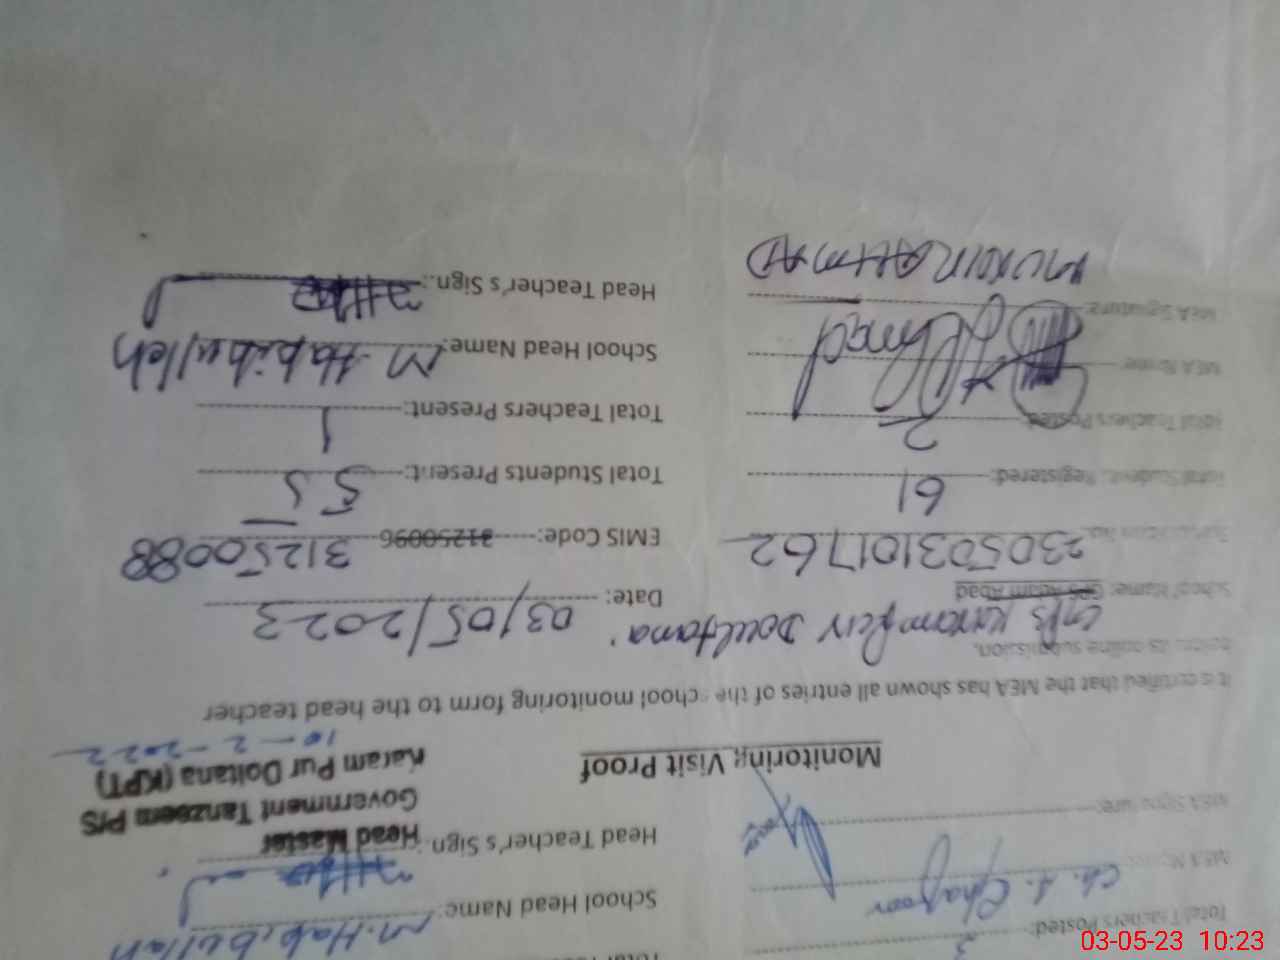 Total Teachers Posted: 3
MEA Name: Ch. A. Ghafoor School Head Name: M. Habibullah
MEA Signature: Head Teacher's Sign.:
Head Master
Government Tanzeem P/S
Karam Pur Doltana (KPT)
10-2-2022
Monitoring Visit Proof
It is certified that the MEA has shown all entries of the school monitoring form to the head teacher
before its online submission.
School Name: GPS Karam Pur Doultana Date: 03/05/2023
GPS Adam Abad
230503101762 EMIS Code: 31250096 31250088
Total Student Registered: 61 Total Students Present: 55
Total Teachers Posted: 2 Total Teachers Present: 1
MEA Name: Ahmad School Head Name: M. Habibullah
MEA Signature: Head Teacher's Sign.:
AHMAD
03-05-23 10:23